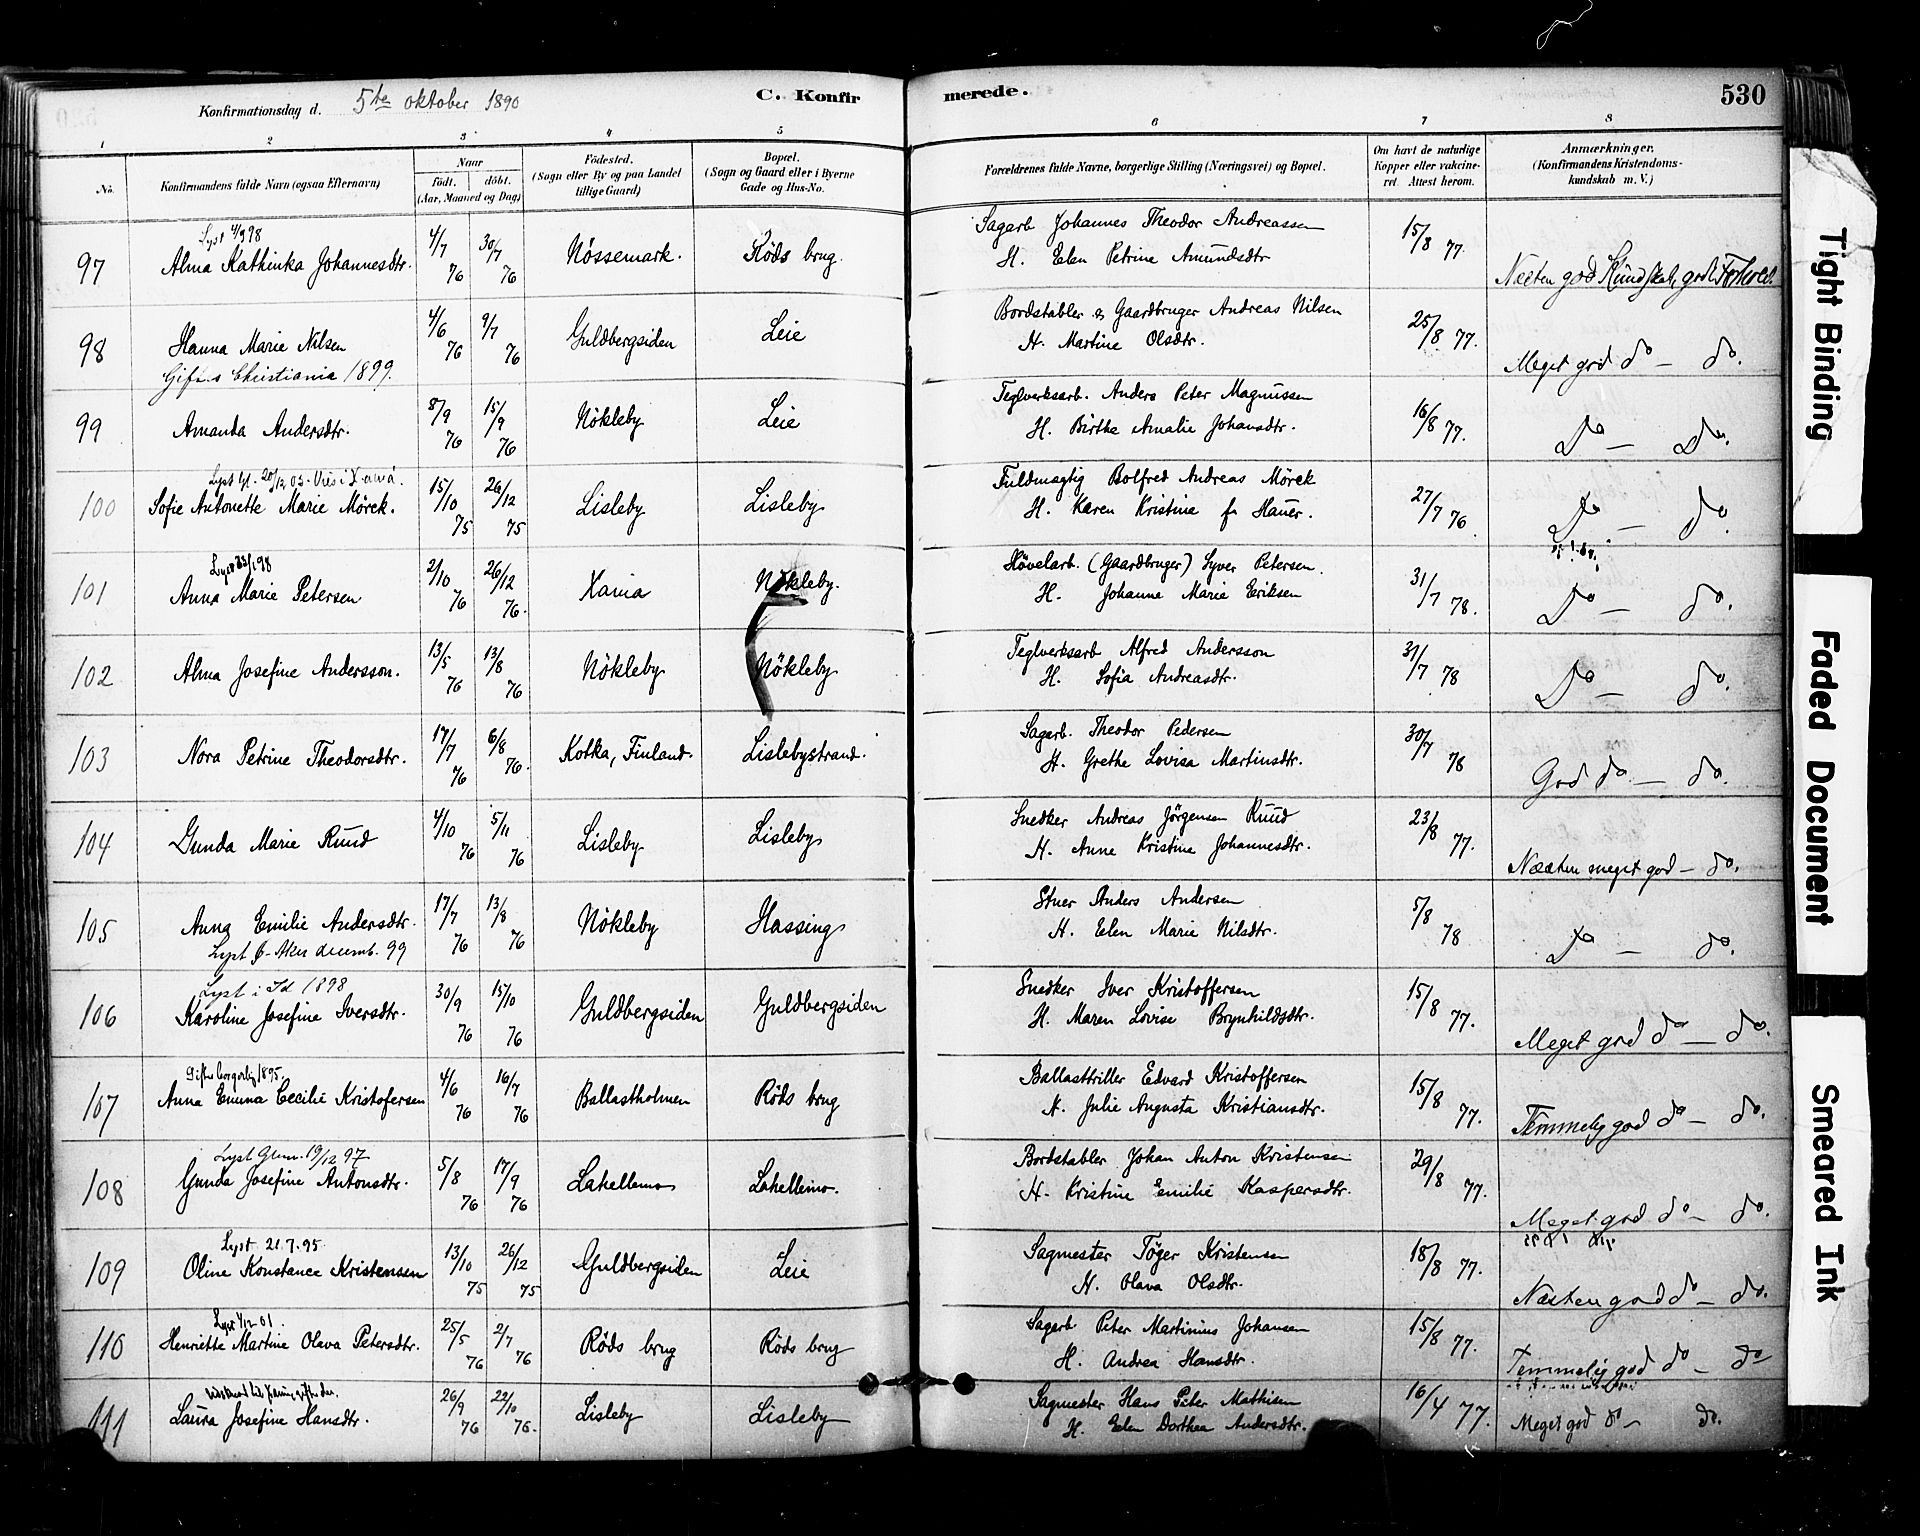 Konfirmationsdag d. 5te oktober 1890
C. Konfir merede.
530
1 2 3 4 5 6 7 8
No. Konfirmandens fulde Navn (ogsaa Efternavn) Naar födt. döbt. (Aar, Maaned og Dag) Födested. (Sogn eller By og paa Landet tillige Gaard) Bopæl. (Sogn og Gaard eller i Byerne Gade og Hus-No. Forældrenes fulde Navne, borgerlige Stilling (Næringsvei) og Bopæl. Om havt de naturlige Kopper eller vakcineret. Attest herom. Anmærkninger. (Konfirmandens Kristendomskundskab m. V.)
Lyst 4/9 98
97 Alma Kathinka Johannesdtr. 4/7 76 30/7 76 Nössemark. Röds brug. Sagarb. Johannes Theodor Andreassen
H. Elen Petrine Amundsdtr 15/8 77. Næsten god Kundskab, godt Forhold.
98 Hanna Marie Nilsen 4/6 76 9/7 76 Guldbergsiden Leie Bordstabler & Gaardbruger Andreas Nilsen
H. Martine Olsdtr. 25/8 77. Meget god do — do.
Giftes Christiania 1899.
99 Amanda Andersdtr. 8/9 76 15/9 76 Nökleby Leie Teglverksarb. Anders Peter Magnussen
H. Birthe Amalie Johansdtr. 16/8 77. Do — Do.
100 Sofie Antonette Marie Mörck. 15/10 75 26/12 75 Lisleby Lisleby Fuldmagtig Bolfred Andreas Mörck
H. Karen Kristine f. Hauer. 27/7 76 Do — do.
101 Anna Marie Petersen 2/10 76 26/12 76. Xania Nökleby. Hövelarb. (Gaardbruger) Syver Petersen.
H. Johanne Marie Eriksen 31/7 78. Do — do.
102 Alma Josefine Andersson. 13/5 76 13/8 76 Nökleby Nökleby Teglverksarb Alfred Andersson
H. Sofia Andreasdtr. 31/7 78 Do — do.
103 Nora Petrine Theodorsdtr. 17/7 76 6/8 76. Kotka, Finland. Lislebystrand. Sagarb. Theodor Pedersen
H. Grethe Lovisa Martinsdtr. 30/7 78 God do. — do.
104 Gunda Marie Ruud 4/10 76 5/11 76 Lisleby Lisleby Snedker Andreas Jörgensen Ruud
H. Anne Kristine Johannesdtr. 23/8 77. Næsten meget god — do.
105 Anna Emilie Andersdtr. 17/7 76 13/8 76 Nökleby Hassing Stuer Anders Andersen
H. Elen Marie Nilsdtr. 5/8 78 Do — do.
Lyst i Id 1898
106 Karoline Josefine Iversdtr. 30/9 76 15/10 76 Guldbergsiden Guldbergsiden Snedker Iver Kristoffersen
H. Maren Lovise Brynhildsdtr. 15/8 77. Meget god do — do.
Giftes borgerlig 1895.
107 Anna Emma Cecilie Kristofersen 4/6 76 16/7 76 Ballastholmen Röds brug Ballasttriller Edvard Kristoffersen
H. Julie Augusta Kristiansdtr. 15/8 77. Temmelig god do — do.
Lyst Glem. 19/12 97
108 Gunda Josefine Antonsdtr. 5/8 76 17/9 76 Lahellemo Lahellemo. Bordstabler Johan Anton Kristensen
H. Kristine Emilie Kaspersdtr. 29/8 77. Meget god do — do.
Lyst 21.7.95
109 Oline Konstance Kristensen 13/10 75 26/12 75 Guldbergsiden Leie Sagmester Töger Kristensen
H. Olava Olsdtr. 18/8 77. Næsten god do — do.
Lyst 1/12 01.
110 Henriette Martine Olava Petersdtr. 25/5 76 2/7 76 Röds brug Röds brug Sagarb. Peter Martinius Johansen
H. Andrea Hansdtr. 15/8 77. Temmelig god do — do
111 Laura Josefine Hansdtr. 26/9 76 22/10 76. Lisleby Lisleby Sagmester Hans Peter Mathisen
H. Elen Dorthea Andersdtr. 16/4 77. Meget god do — do.
Tight Binding
Faded Document
Smeared Ink